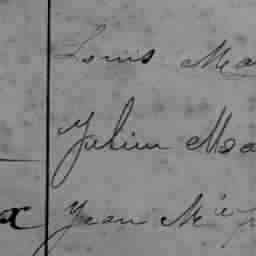 Louis Ma
Julien Ma
x Jean M